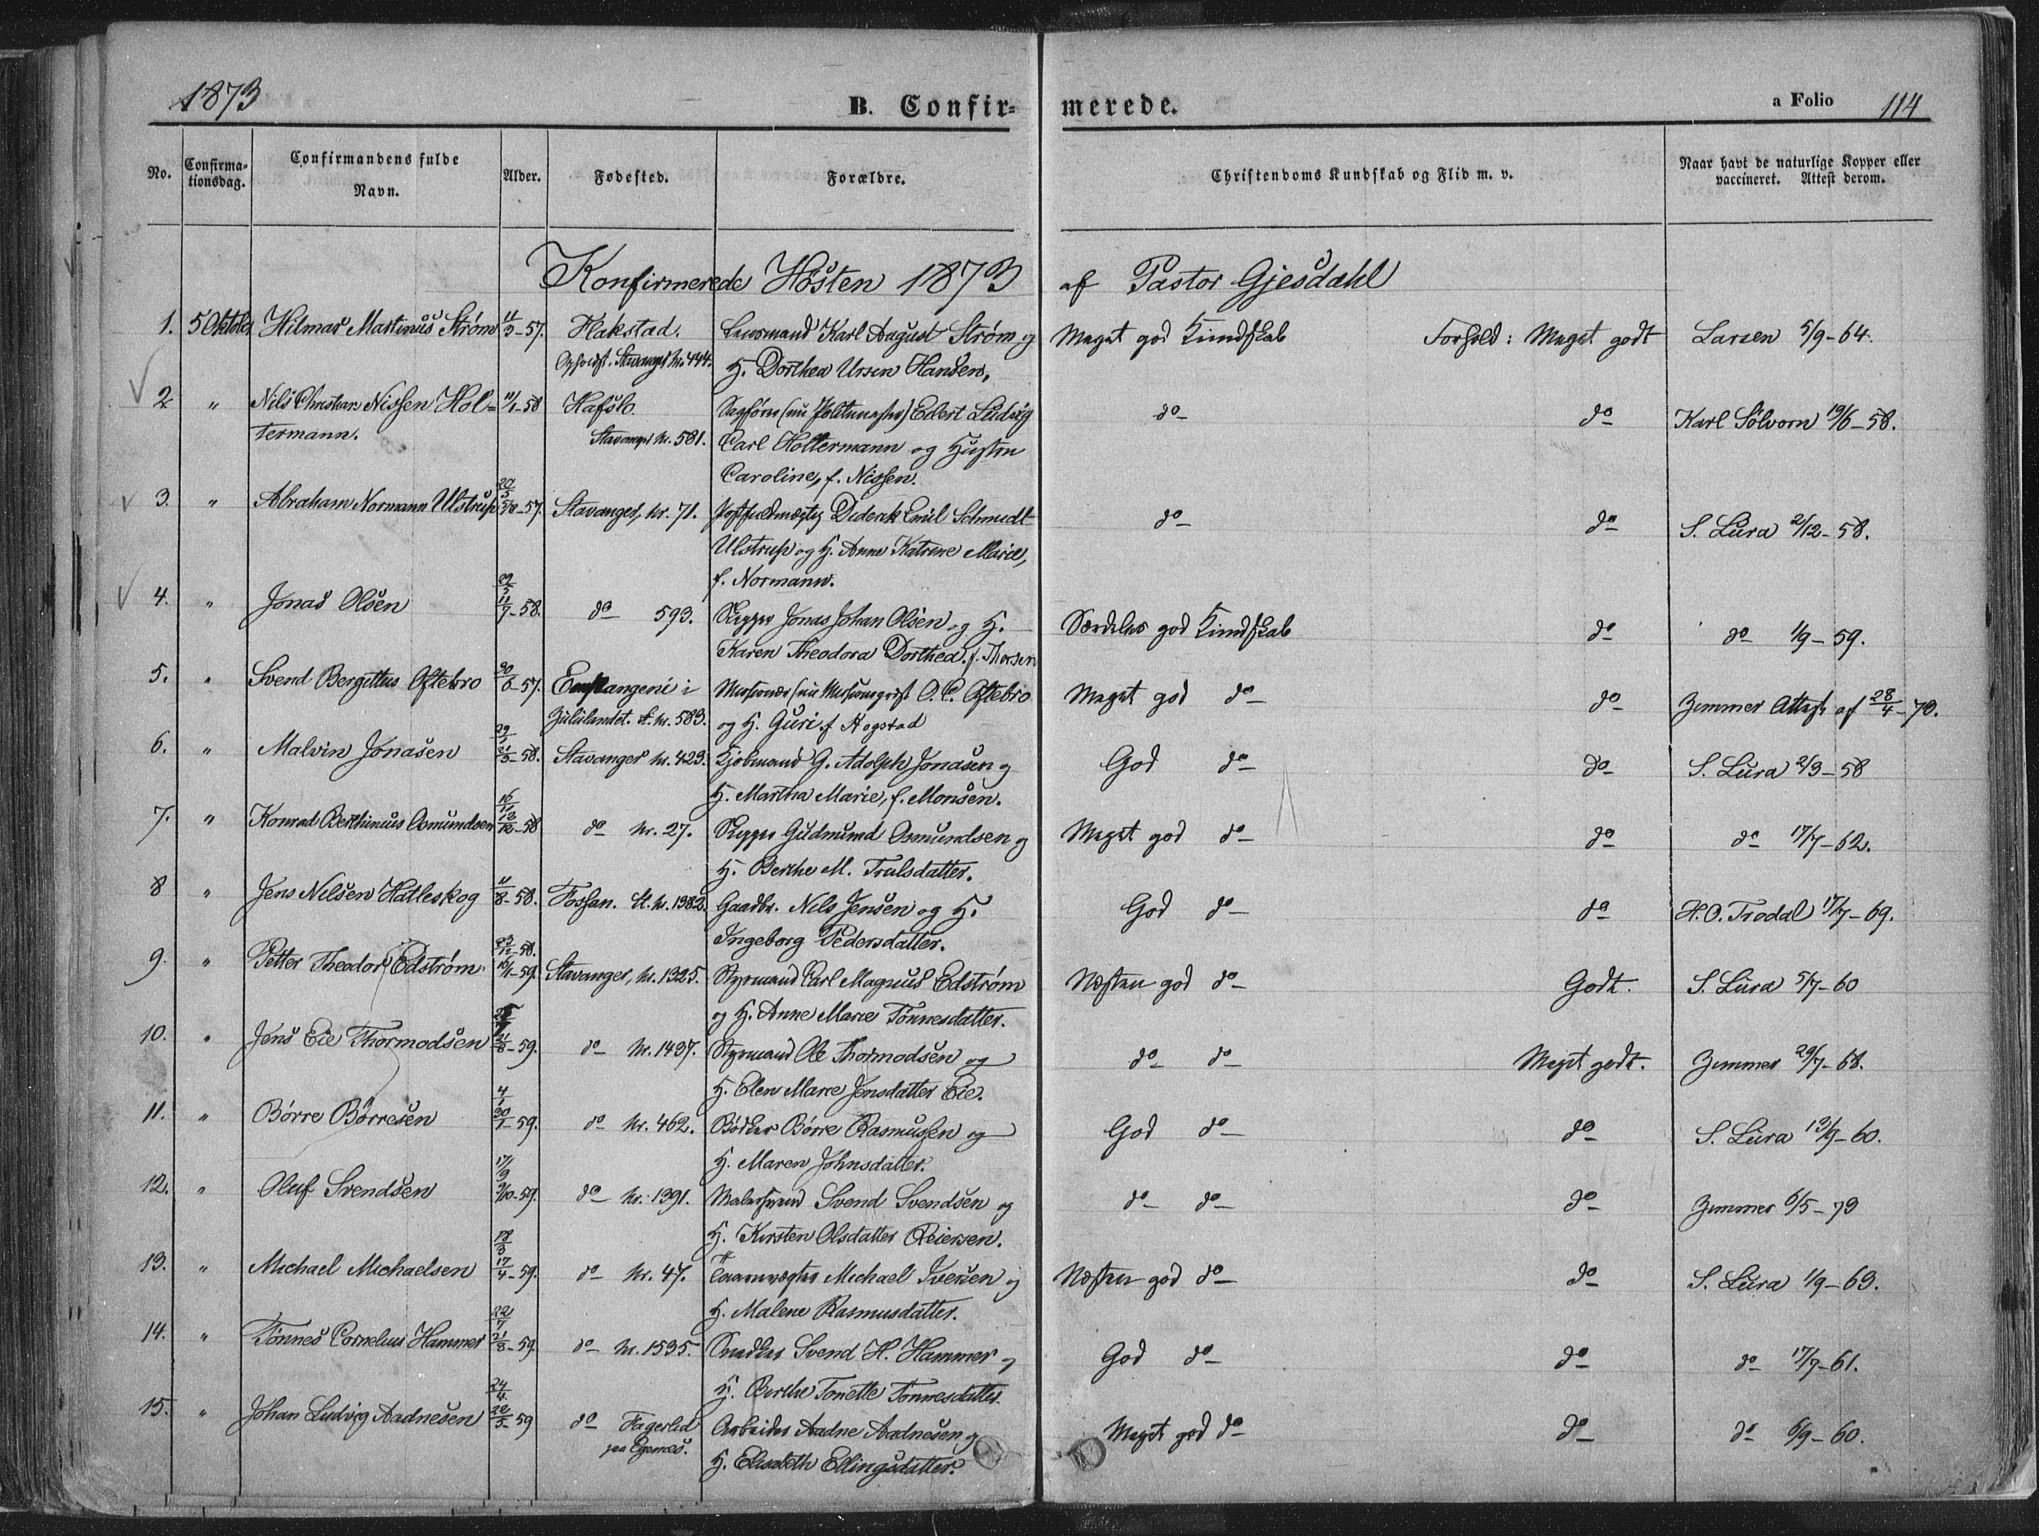 1873 B. Confir= merede. a Folio 114
No. Confirma-tionsdag. Confirmandens fulde Navn. Alder. Fødested. Forældre. Christendoms Kundskab og Flid m. v. Naar havt de naturlige Kopper eller vaccineret. Attest derom.
Konfirmerede Høsten 1873 af Pastor Gjesdahl
1. 5 Oktober Hilmar Martinus Strøm 11/3-57. Hakstad. Karl August Strøm og Meget god Kundskab Forhold: Meget godt Larsen 5/9-64.
Stavanger Nr. 444. H. Dorthea Ursin Hansen.
2 " Nils Christian Nissen Hol= 11/1-58 Hafslo Sagfører (nu Politimester) Edert Ludvig do do Karl Sølvorn 19/6-58.
termann. Stavanger Nr. 581. Carl Holtermann og Hustru
Caroline, f. Nissen.
3. " Abraham Normann Ulstrup 5/10-57. Stavanger, Nr. 71. Postfuldmægtig Diderik Emil Schmidt do do S. Lura 2/12-58.
Ulstrup og H. Anne Katrine Marie,
f. Normann.
4. " Jonas Olsen 11/7-58. do 593. Skipper Jonas Johan Olsen og H. Særdeles god Kundskab do do 1/9-59.
Karen Theodora Dorthea f. Thorsen
5. " Svend Bergittus Oftebro 30/6-57. i O. C. Oftebro Meget god do do Zimmer Attest af 28/4-73.
Zululandet. St. Nr. 583. og H. Guri f. Hogstad
6. " Malvin Jonasen 21/3-58. Stavanger Nr. 423. Kjøbmand G. Adolph Jonasen og God do do S. Lura 2/3-58
H. Martha Marie, f. Monsen.
7. " Konrad Berthinius Osmundsen 12/12-58 do Nr. 27. Skipper Gudmund Osmundsen og Meget god do do do 17/7-62.
H. Berthe M. Trulsdatter.
8 " Jens Nilsen Hatleskog 11/8-58. Fossan. St. Nr. 1382. Gaardbr. Nils Jensen og H. God do do H. O. Trodal 17/7-69.
Ingeborg Pedersdatter.
9. " Petter Theodor Edstrøm. 16/1-59. Stavanger, Nr. 1325. Styrmand Carl Magnus Edstrøm Næsten god do Godt. S. Lura 5/7-60
og H. Anne Marie Tønnesdatter.
10. " Jens Eie Thormodsen 21/8-59. do Nr. 1437. Styrmand Ole Thormodsen og do do Meget godt. Zimmer 29/7-68.
H. Elen Marie Jensdatter Eie.
11. " Børre Børresen 20/1-59. do Nr. 462. Bødker Børre Rasmussen og God do do S. Lura 13/9-60.
H. Maren Johnsdatter.
12. " Oluf Svendsen 9/10-59. do Nr. 1391. Malersvend Svend Svendsen og do do do Zimmer 6/5-73
H. Kirsten Olsdatter Reiersen.
13. " Michael Michaelsen 17/4-59. do Nr. 47. Michael Iversen og Næsten god do do S. Lura 1/9-63.
H. Malene Rasmusdatter.
14. " Tønnes Cornelius Hammer 21/8-59. do Nr. 1535. Snedker Svend H. Hammer og God do do do 17/7-61.
H. Berthe Tonette Tønnesdatter
15. " Johan Ludvig Aadnesen 22/5-59 do Fagerlid Arbeider Aadne Aadnesen og Meget god do do do 6/9-60.
paa Egenæs. H. Elisabeth Ellingsdatter.